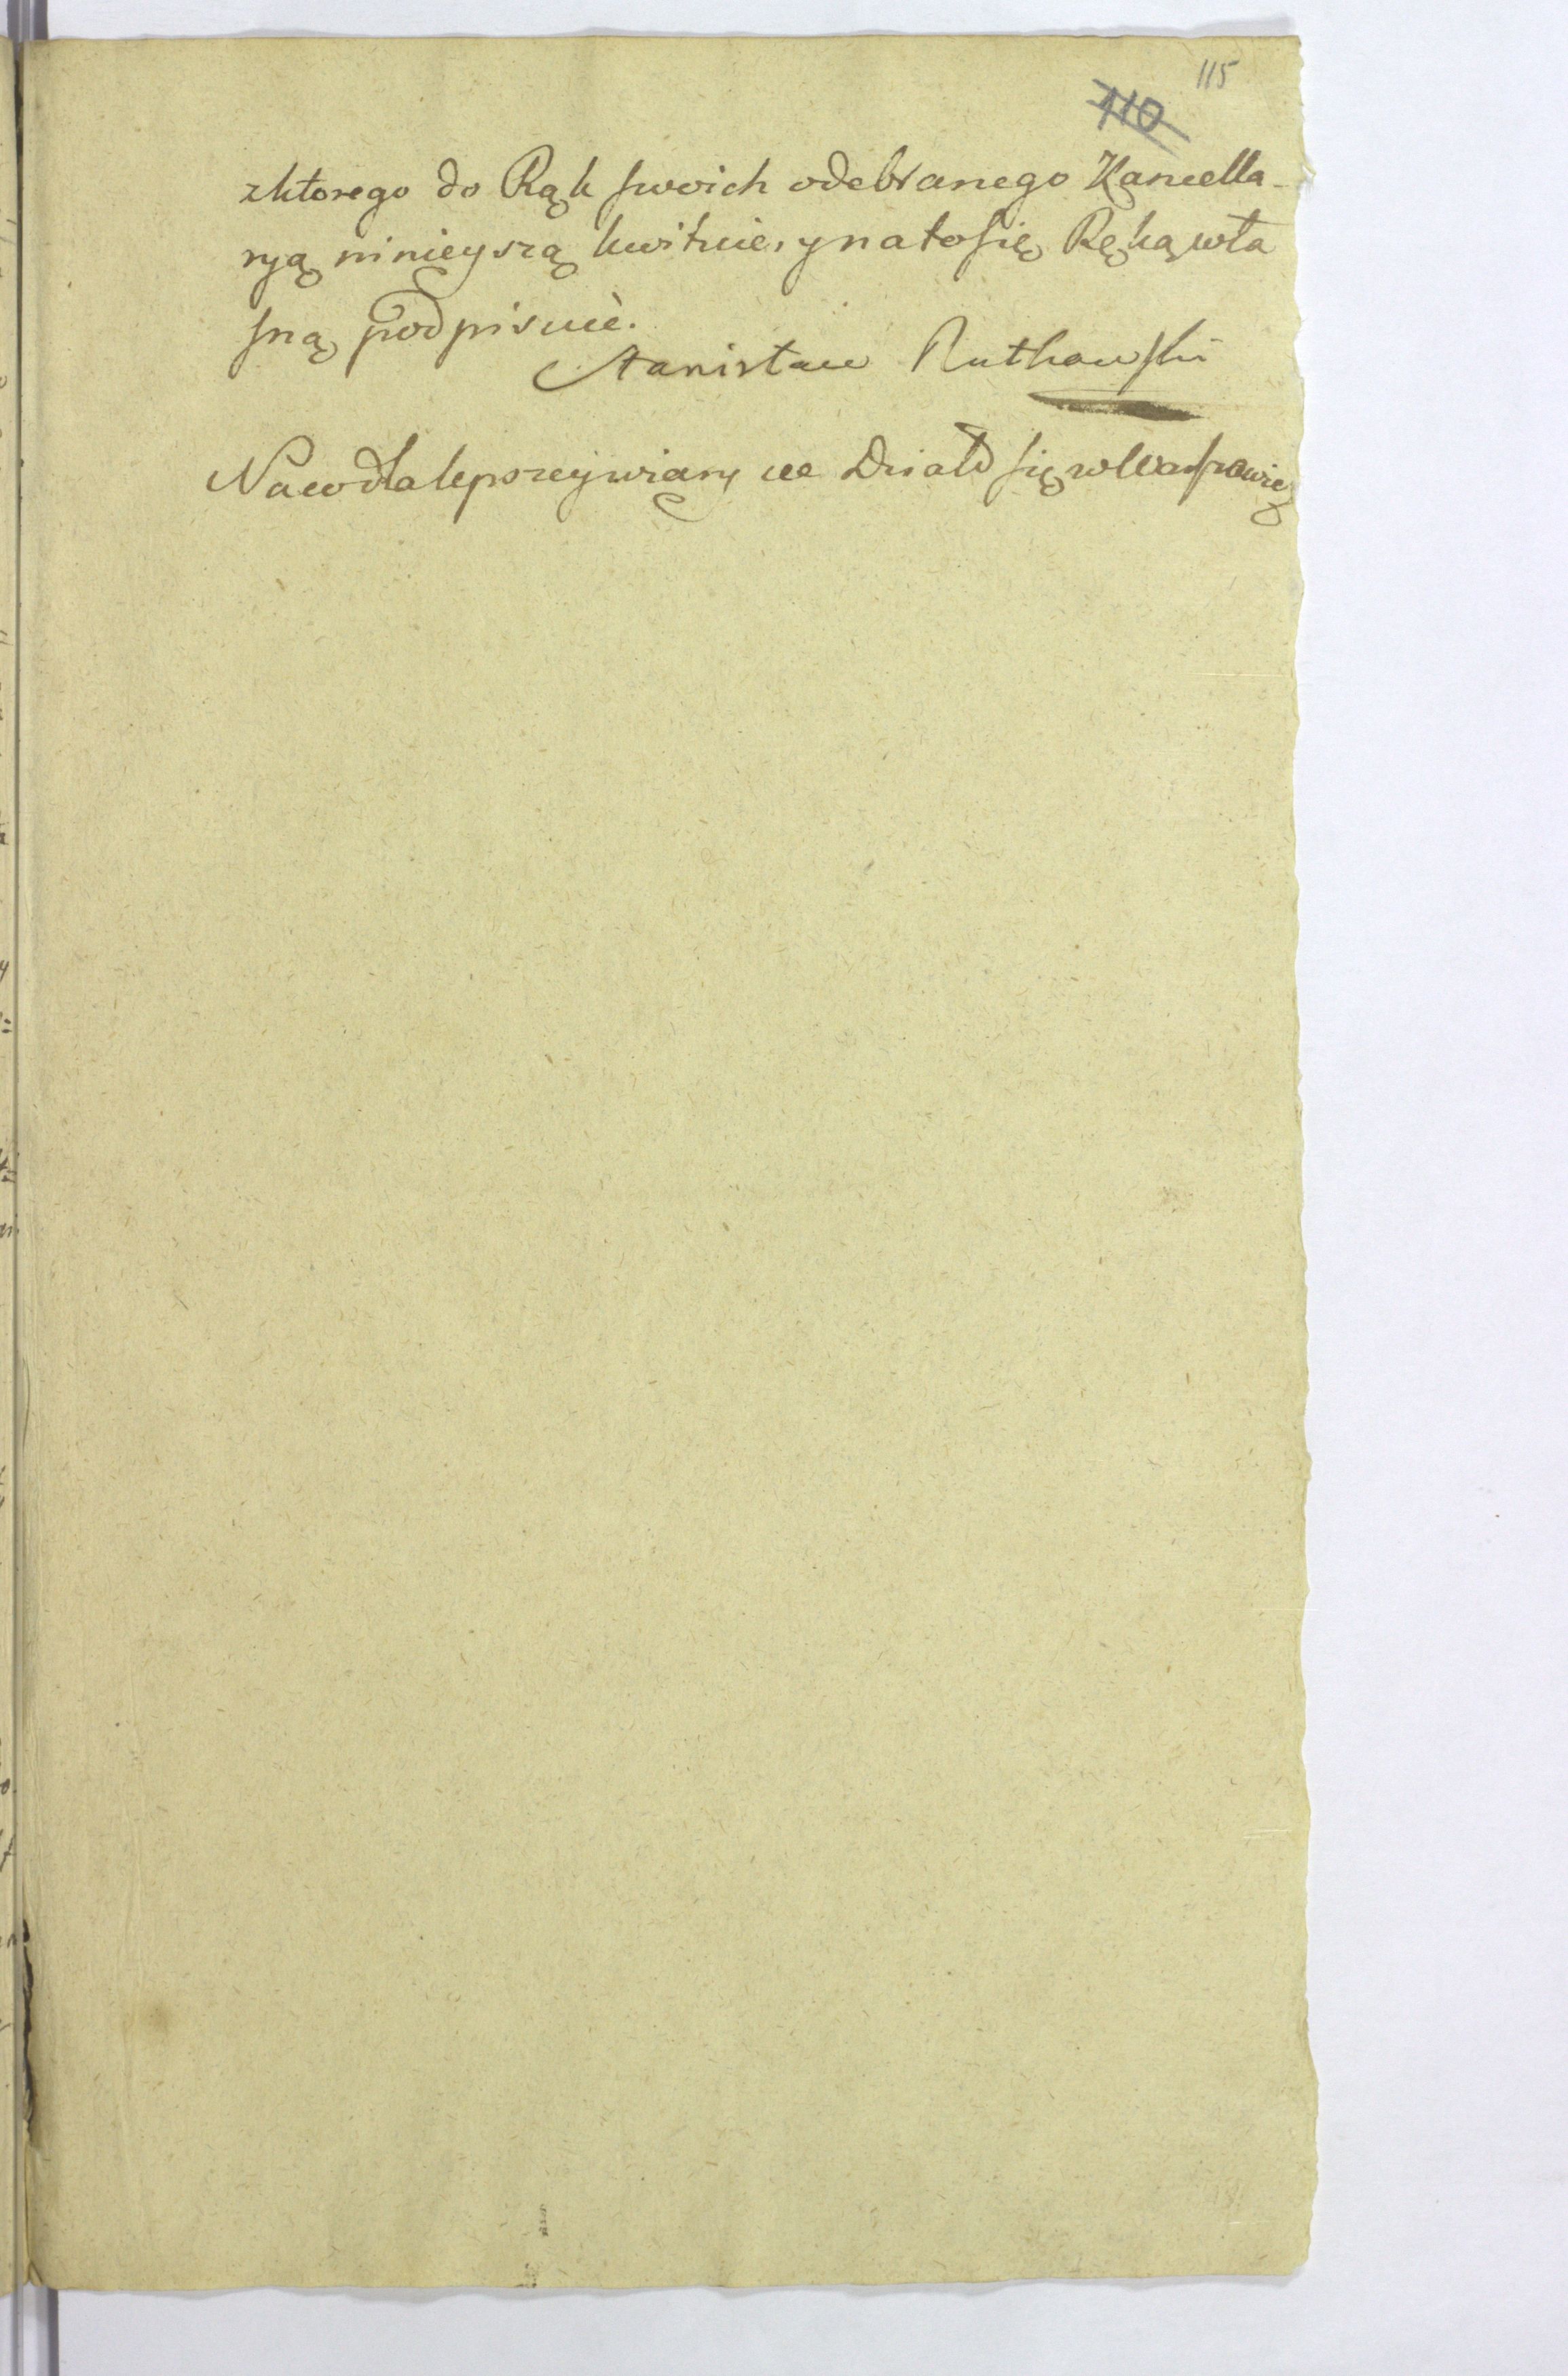 115
110
zktorego do Rąk swoich odebranego Kancella-
ryą ninieyszą kwituie, y na to się Ręką wła
sną podpisuie.
Stanisław Rutkowski
Naco dla lepszey wiary ce Działo się w Warszawie